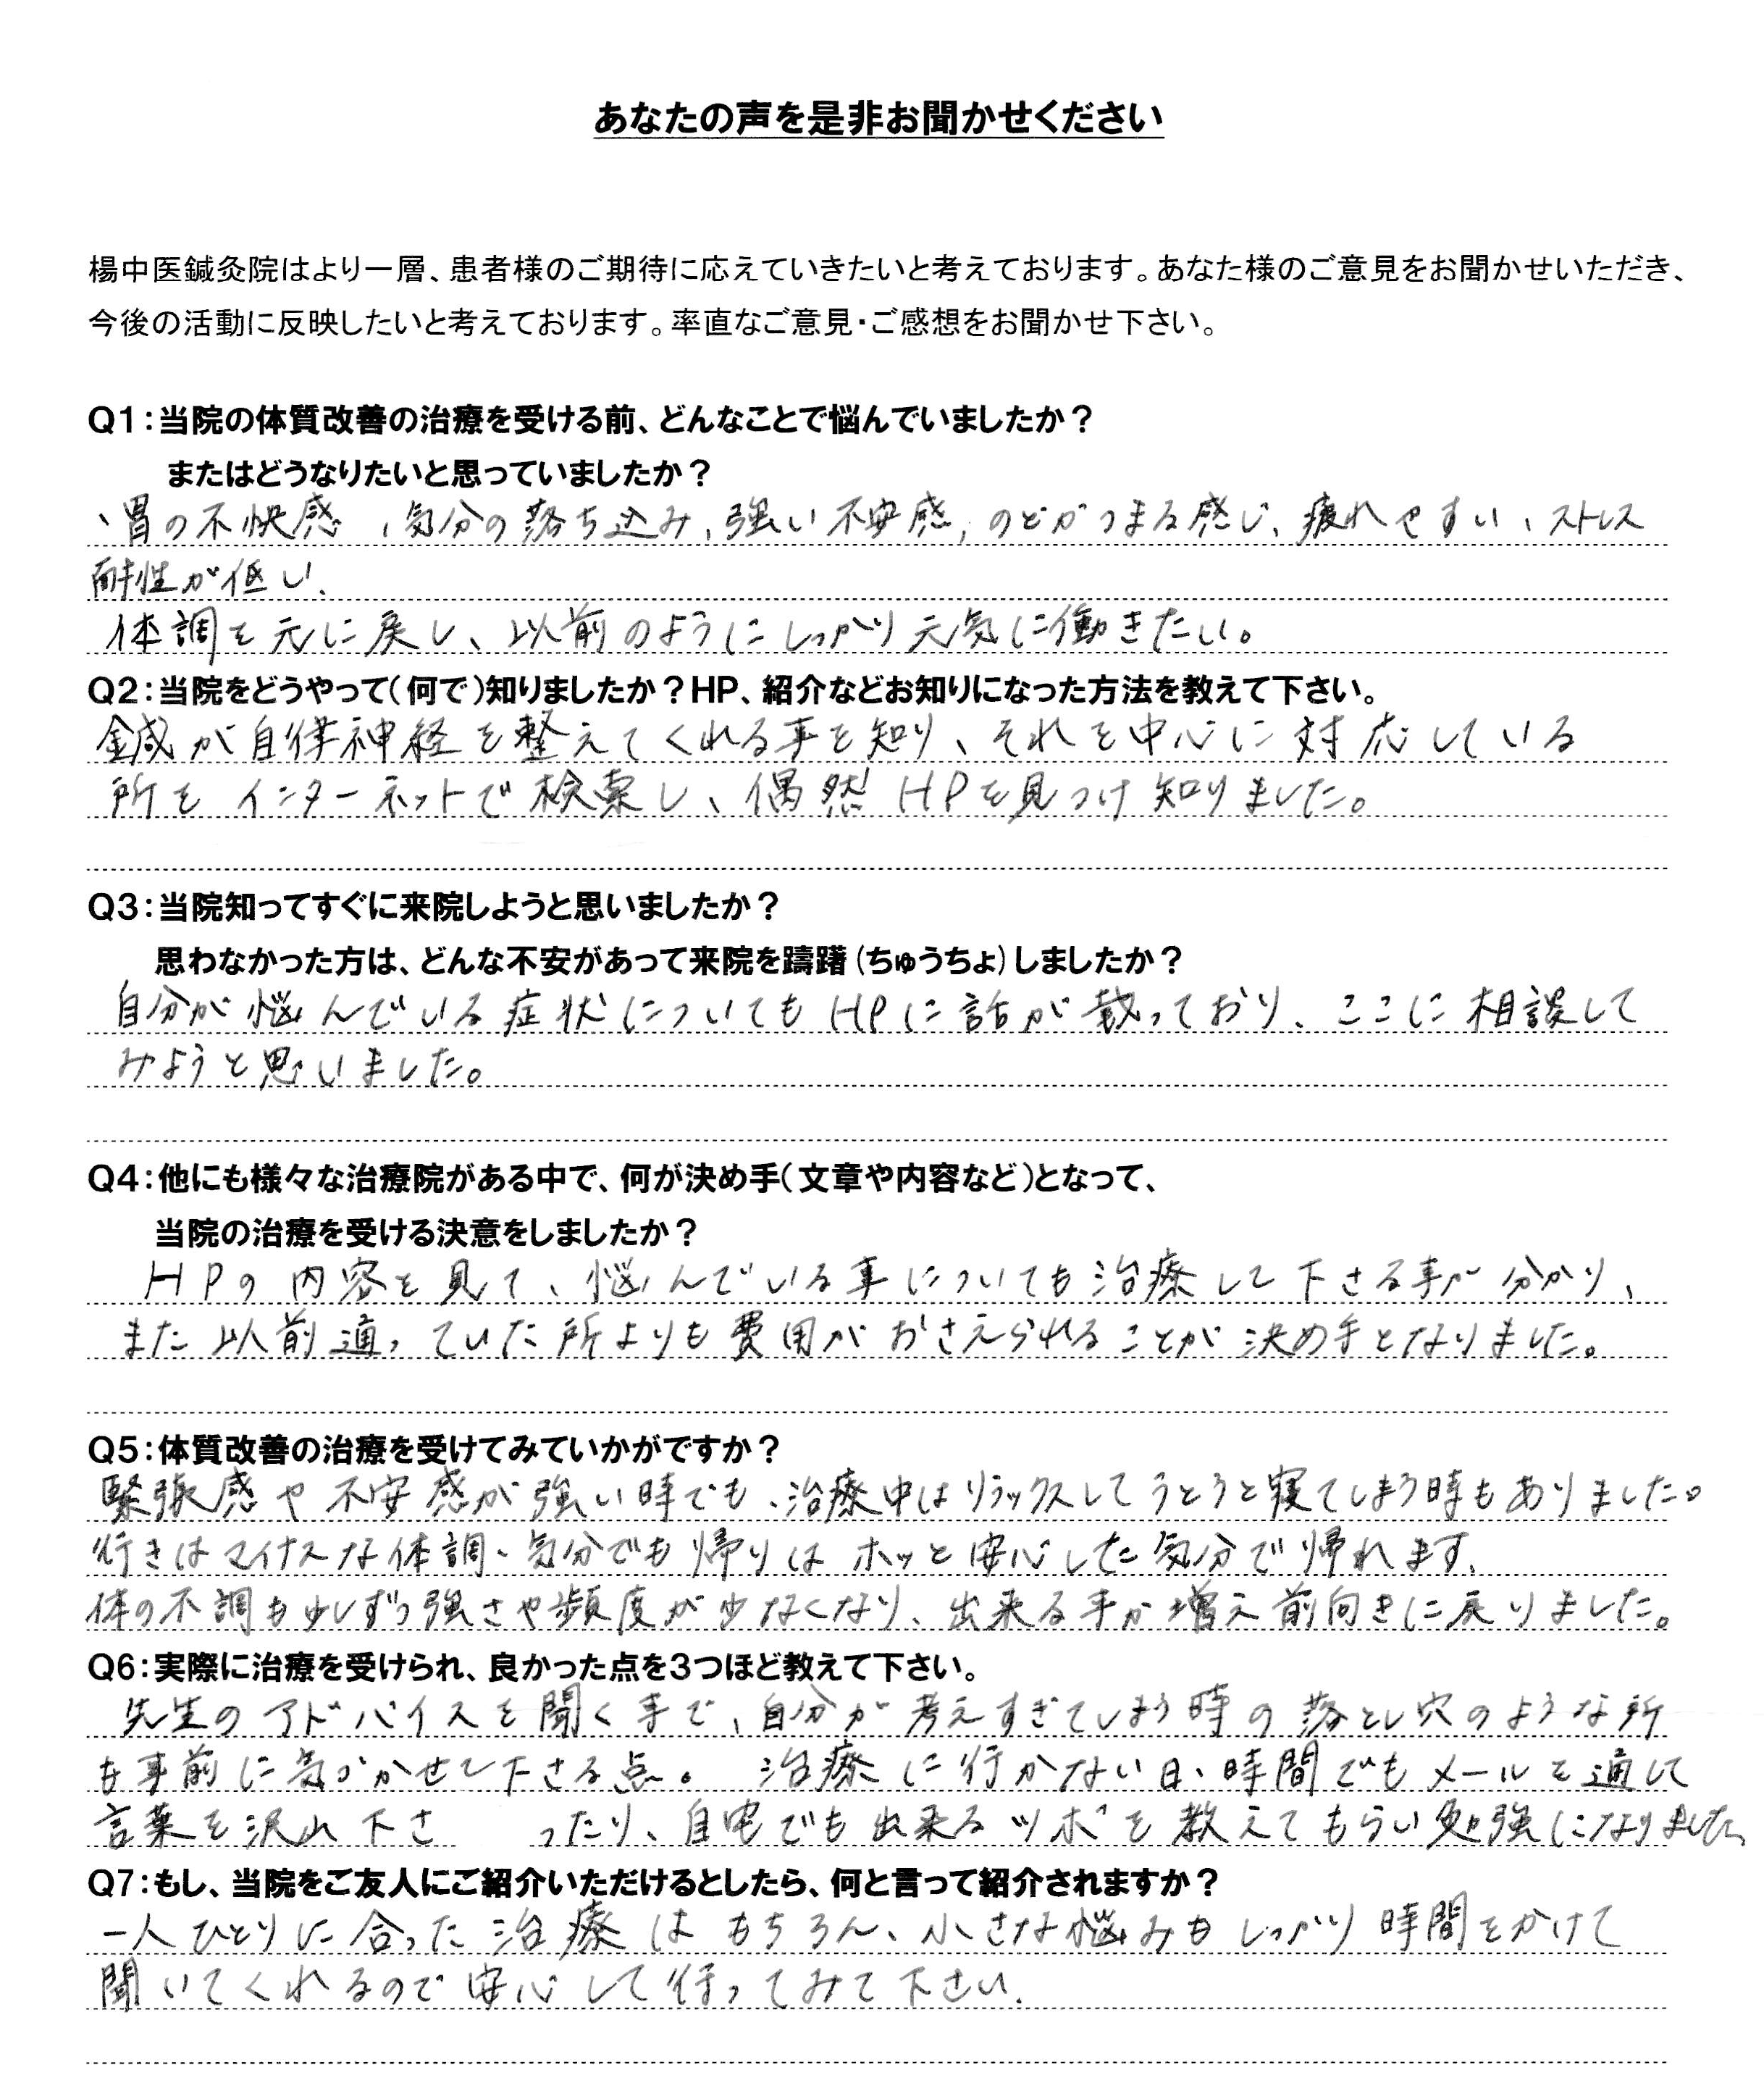 あなたの声を是非お聞かせください
楊中医鍼灸院はより一層、患者様のご期待に応えていきたいと考えております。あなた様のご意見をお聞かせいただき、
今後の活動に反映したいと考えております。率直なご意見・ご感想をお聞かせ下さい。
Q1：当院の体質改善の治療を受ける前、どんなことで悩んでいましたか？
またはどうなりたいと思っていましたか？
、胃の不快感、気分の落ち込み、強い不安感、のどがつまる感じ、疲れやすい、ストレス
耐性が低い、
体調を元に戻し、以前のようにしっかり元気に働きたい。
Q2：当院をどうやって（何で）知りましたか？HP、紹介などお知りになった方法を教えて下さい。
鍼が自律神経を整えてくれる事を知り、それを中心に対応している
所をインターネットで検索し、偶然HPを見つけ知りました。
Q3：当院知ってすぐに来院しようと思いましたか？
思わなかった方は、どんな不安があって来院を躊躇（ちゅうちょ）しましたか？
自分が悩んでいる症状についてもHPに話が載っており、ここに相談して
みようと思いました。
Q4：他にも様々な治療院がある中で、何が決め手（文章や内容など）となって、
当院の治療を受ける決意をしましたか？
HPの内容を見て、悩んでいる事についても治療して下さる事が分かり、
また以前通っていた所よりも費用がおさえられることが決め手となりました。
Q5：体質改善の治療を受けてみていかがですか？
緊張感や不安感が強い時でも、治療中はリラックスしてうとうと寝てしまう時もありました。
行きはマイナスな体調、気分でも帰りはホッと安心した気分で帰れます、
体の不調も少しずつ強さや頻度が少なくなり、出来る事が増え前向きに戻りました。
Q6：実際に治療を受けられ、良かった点を3つほど教えて下さい。
先生のアドバイスを聞く事で、自分が考えすぎてしまう時の落とし穴のような所
を事前に気づかせて下さる点。治療に行かない日、時間でもメールを通して
言葉を沢山下さ ったり、自宅でも出来るツボを教えてもらい勉強になりました、
Q7：もし、当院をご友人にご紹介いただけるとしたら、何と言って紹介されますか？
一人ひとりに合った治療はもちろん、小さな悩みもしっかり時間をかけて
聞いてくれるので安心して行ってみて下さい、